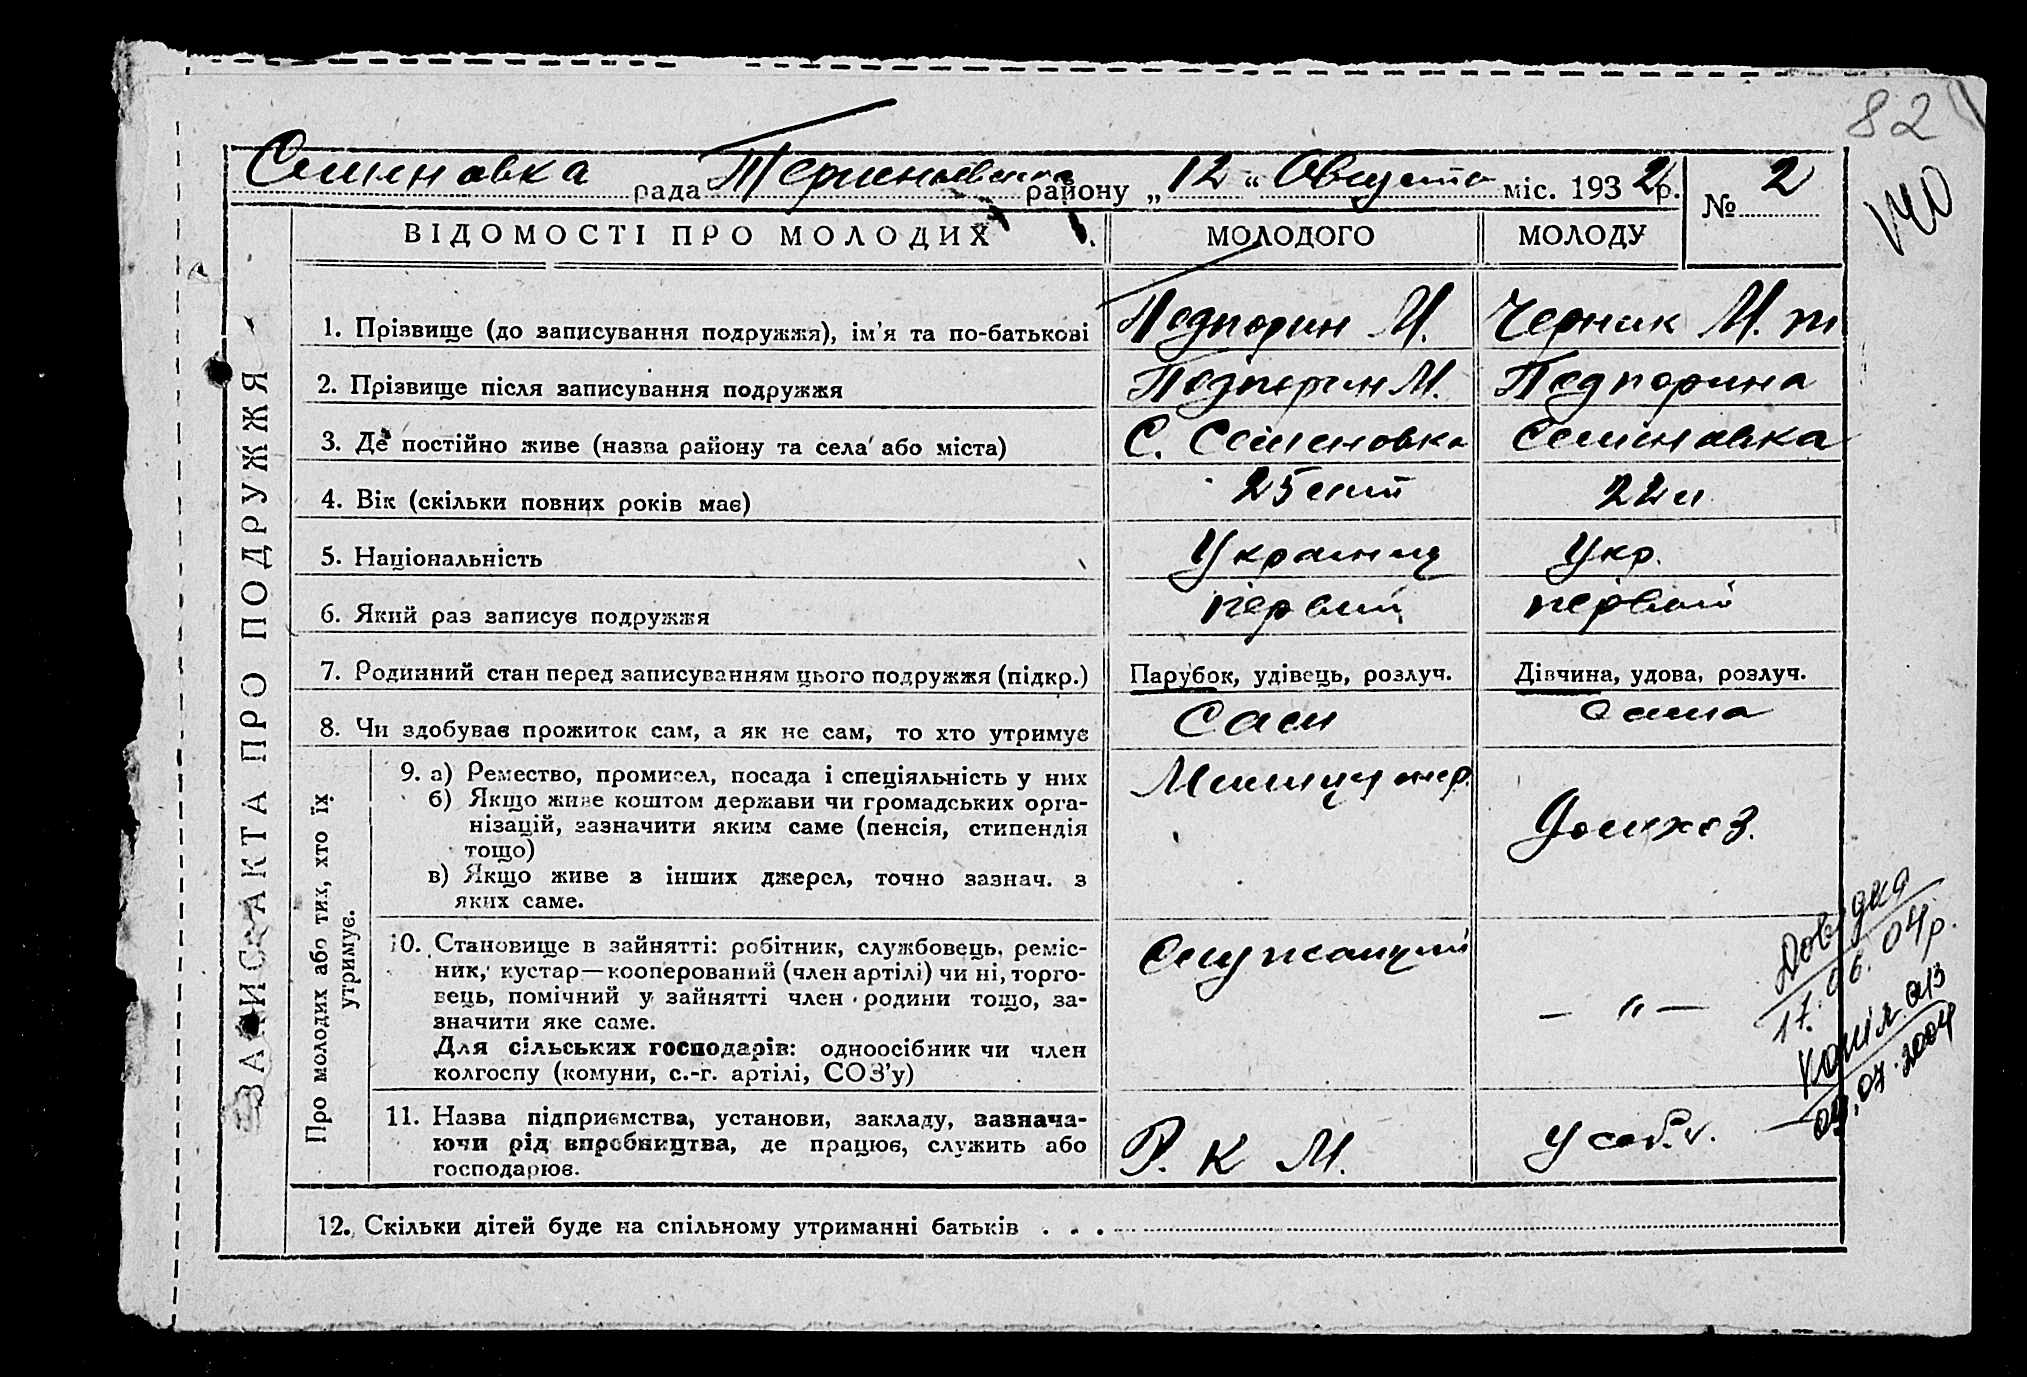 82
140
Семеновка рада район у „ 12 “ Августа міс. 1932 р. № 2
ВІДОМОСТІ ПРО МОЛОДИХ МОЛОДОГО МОЛОДУ
ЗАПИС АКТА ПРО ПОДРУЖЖЯ
1. Прізвище (до записування подружжя), ім’я та по-батькові Подпорин М. Черник М. т
2. Прізвище після записування подружжя Подпорин М. Подпорина
3. Де постійно живе (назва району та села або міста) С. Семеновка Семеновка
4. Вік (скільки повних років має) 25 лет 22 л
5. Національність Украинец Укр.
6. Який раз записує подружжя первый первый
7. Родинний стан перед записуванням цього подружжя (підкр.) Парубок, удівець, розлуч. Дівчина, удова, розлуч.
8. Чи здобував прожиток сам, а як не сам, то хто утримує Сам Сама
Про молодих або тих, хто їх
утримує.
9. а) Ремество, промисел, посада і спеціяльність у них Милиционер.
б) Якщо живе коштом держави чи громадських орга-
нізацій, зазначити яким саме (пенсія, стипендія Домхоз.
тощо)
в) Якщо живе з інших джерел, точно зазнач. з
яких саме.
10. Становище в зайнятті: робітник, службовець, реміс- Служащий
ник, кустар—кооперований (член артілі) чи ні, торго-
вець, помічний у зайнятті член родини тощо, за- — " —
значити яке саме.
Для сільських господарів: одноосібник чи член
колгоспу (комуни, с.-г. артілі, СОЗ’у)
11. Назва підприємства, установи, закладу, зазнача-
ючи рід виробництва, де працює, служить або Р. К М.
господарює.
12. Скільки дітей буде на спільному утриманні батьків . . .
Довідка
17.06.04р.
Копія а/з
09.07.2004